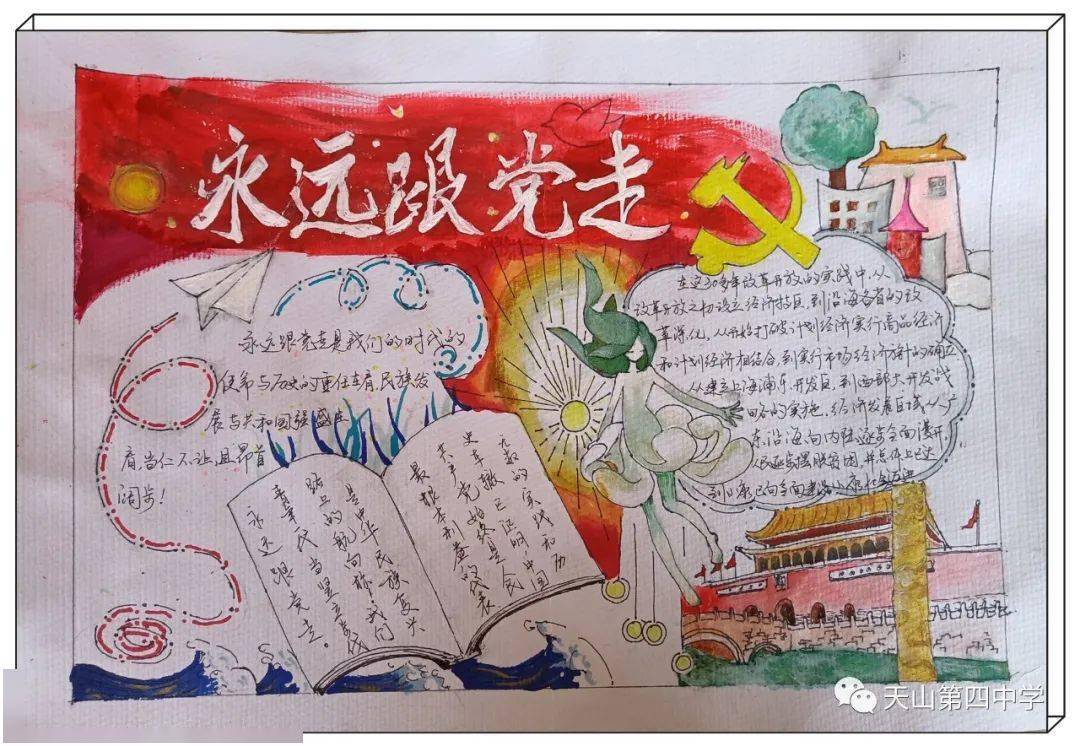 永远跟党走
永远跟党走是我们的时代的
使命与历史的重任在肩,民族发
展与共和国强盛在
肩当仁不让,且昂首
阔步!
九十的实践和历
史车辙已证明,中国
共产党始终是人民
最根本利益的代表
是中华民族复兴
路上的航向标,我们
青年一代当坚立意线
永远跟党走。
在这30多年改革开放的实践中,从
改革开放之初设立经济特区,到沿海各省的改
革深化,从开始打破计划经济实行商品经济
和计划经济相结合,到实行市场经济体的确立
从建立上海浦东开发区,到西部大开发战
略的实施,经济发展区域从广
东,沿海,向内陆逐步全面漫开,
人民逐步摆脱贫困,并总体上已达
到小康已向全面建设小康社会迈进
天山第四中学